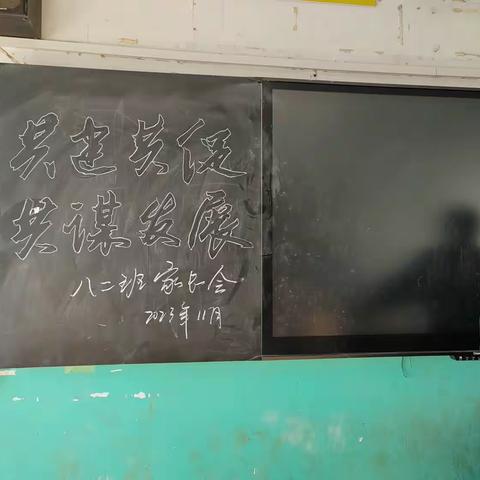 共建共促
共谋发展
八二班家长会
2023年11月